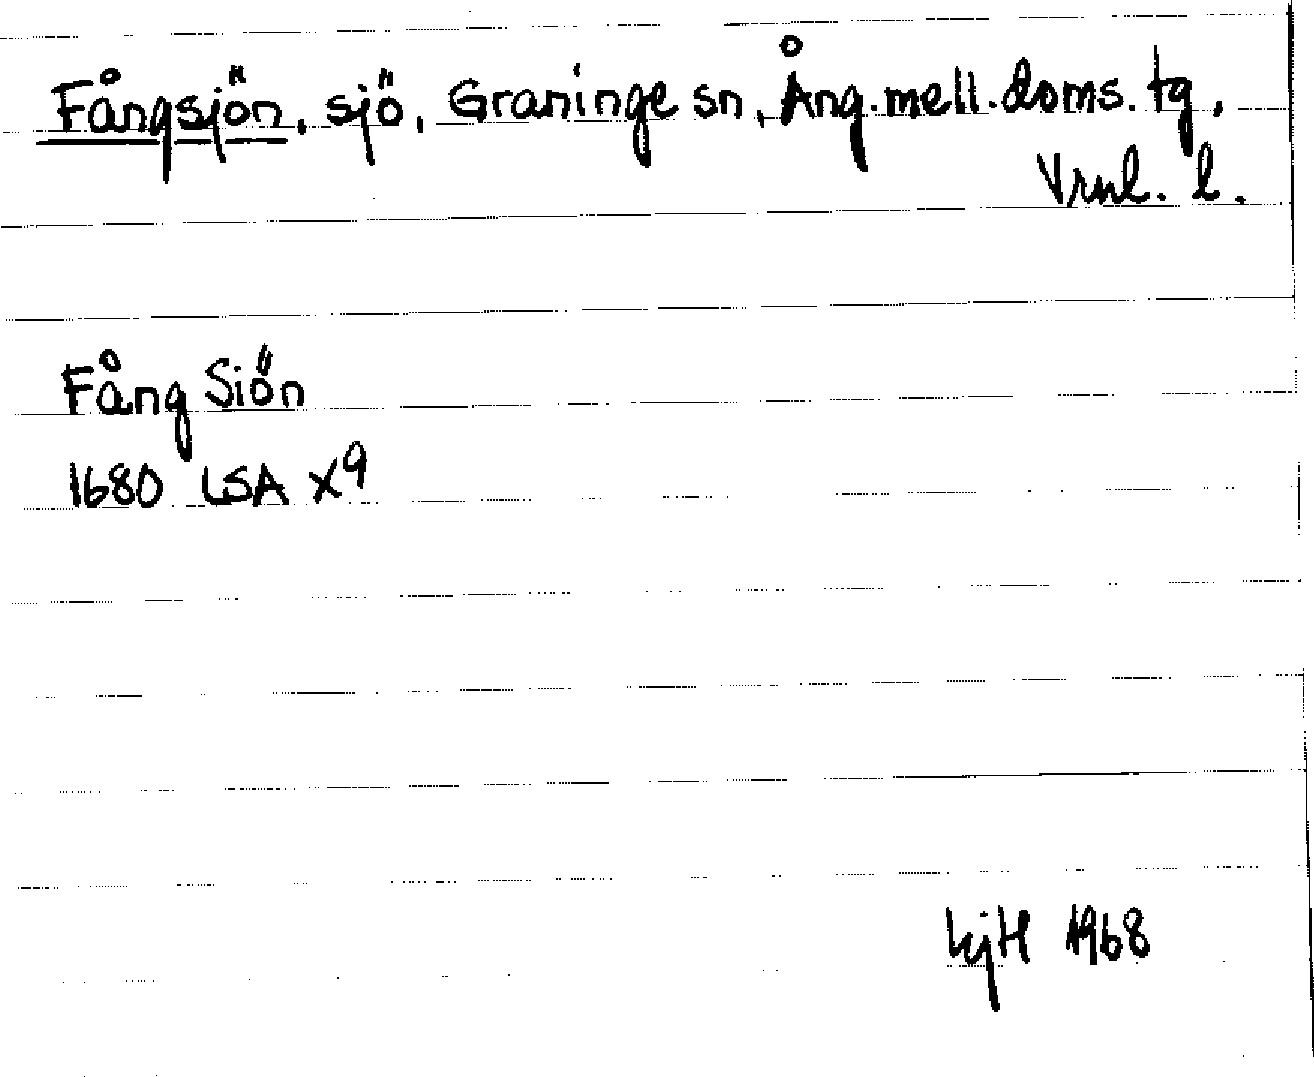 Fångsjön, sjö, Graninge sn, Ång. mell. doms. tg,
Vrnl. l.
Fång Siön
1680 LSA X9
1968